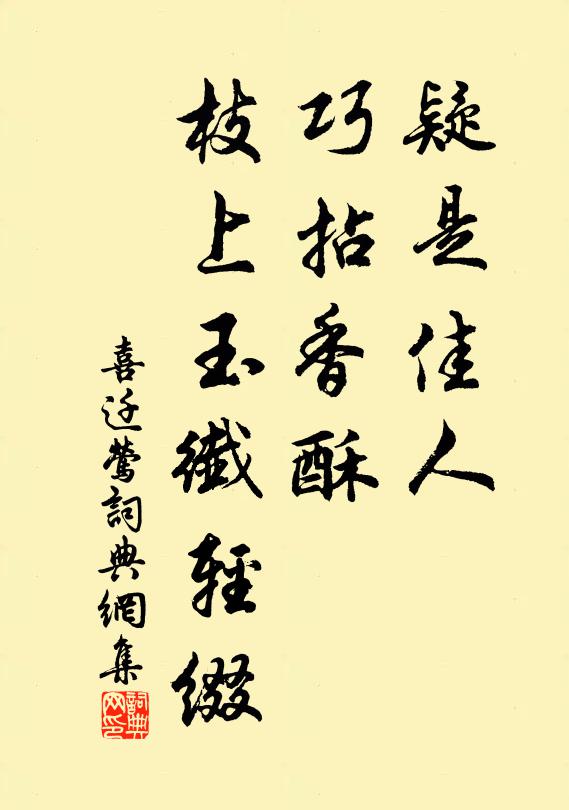 疑是佳人
巧拈香酥
枝上玉纖輕綴
喜迁鶯詞典網集
詞典网印